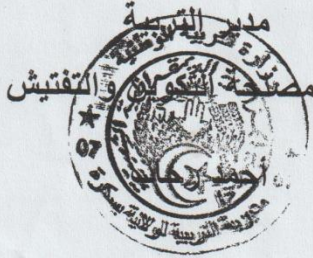 مدير التربية
مصلحة التكوين والتفتيش
أحمد
وزارة التربية الوطنية
مديرية التربية لولاية بسكرة
07